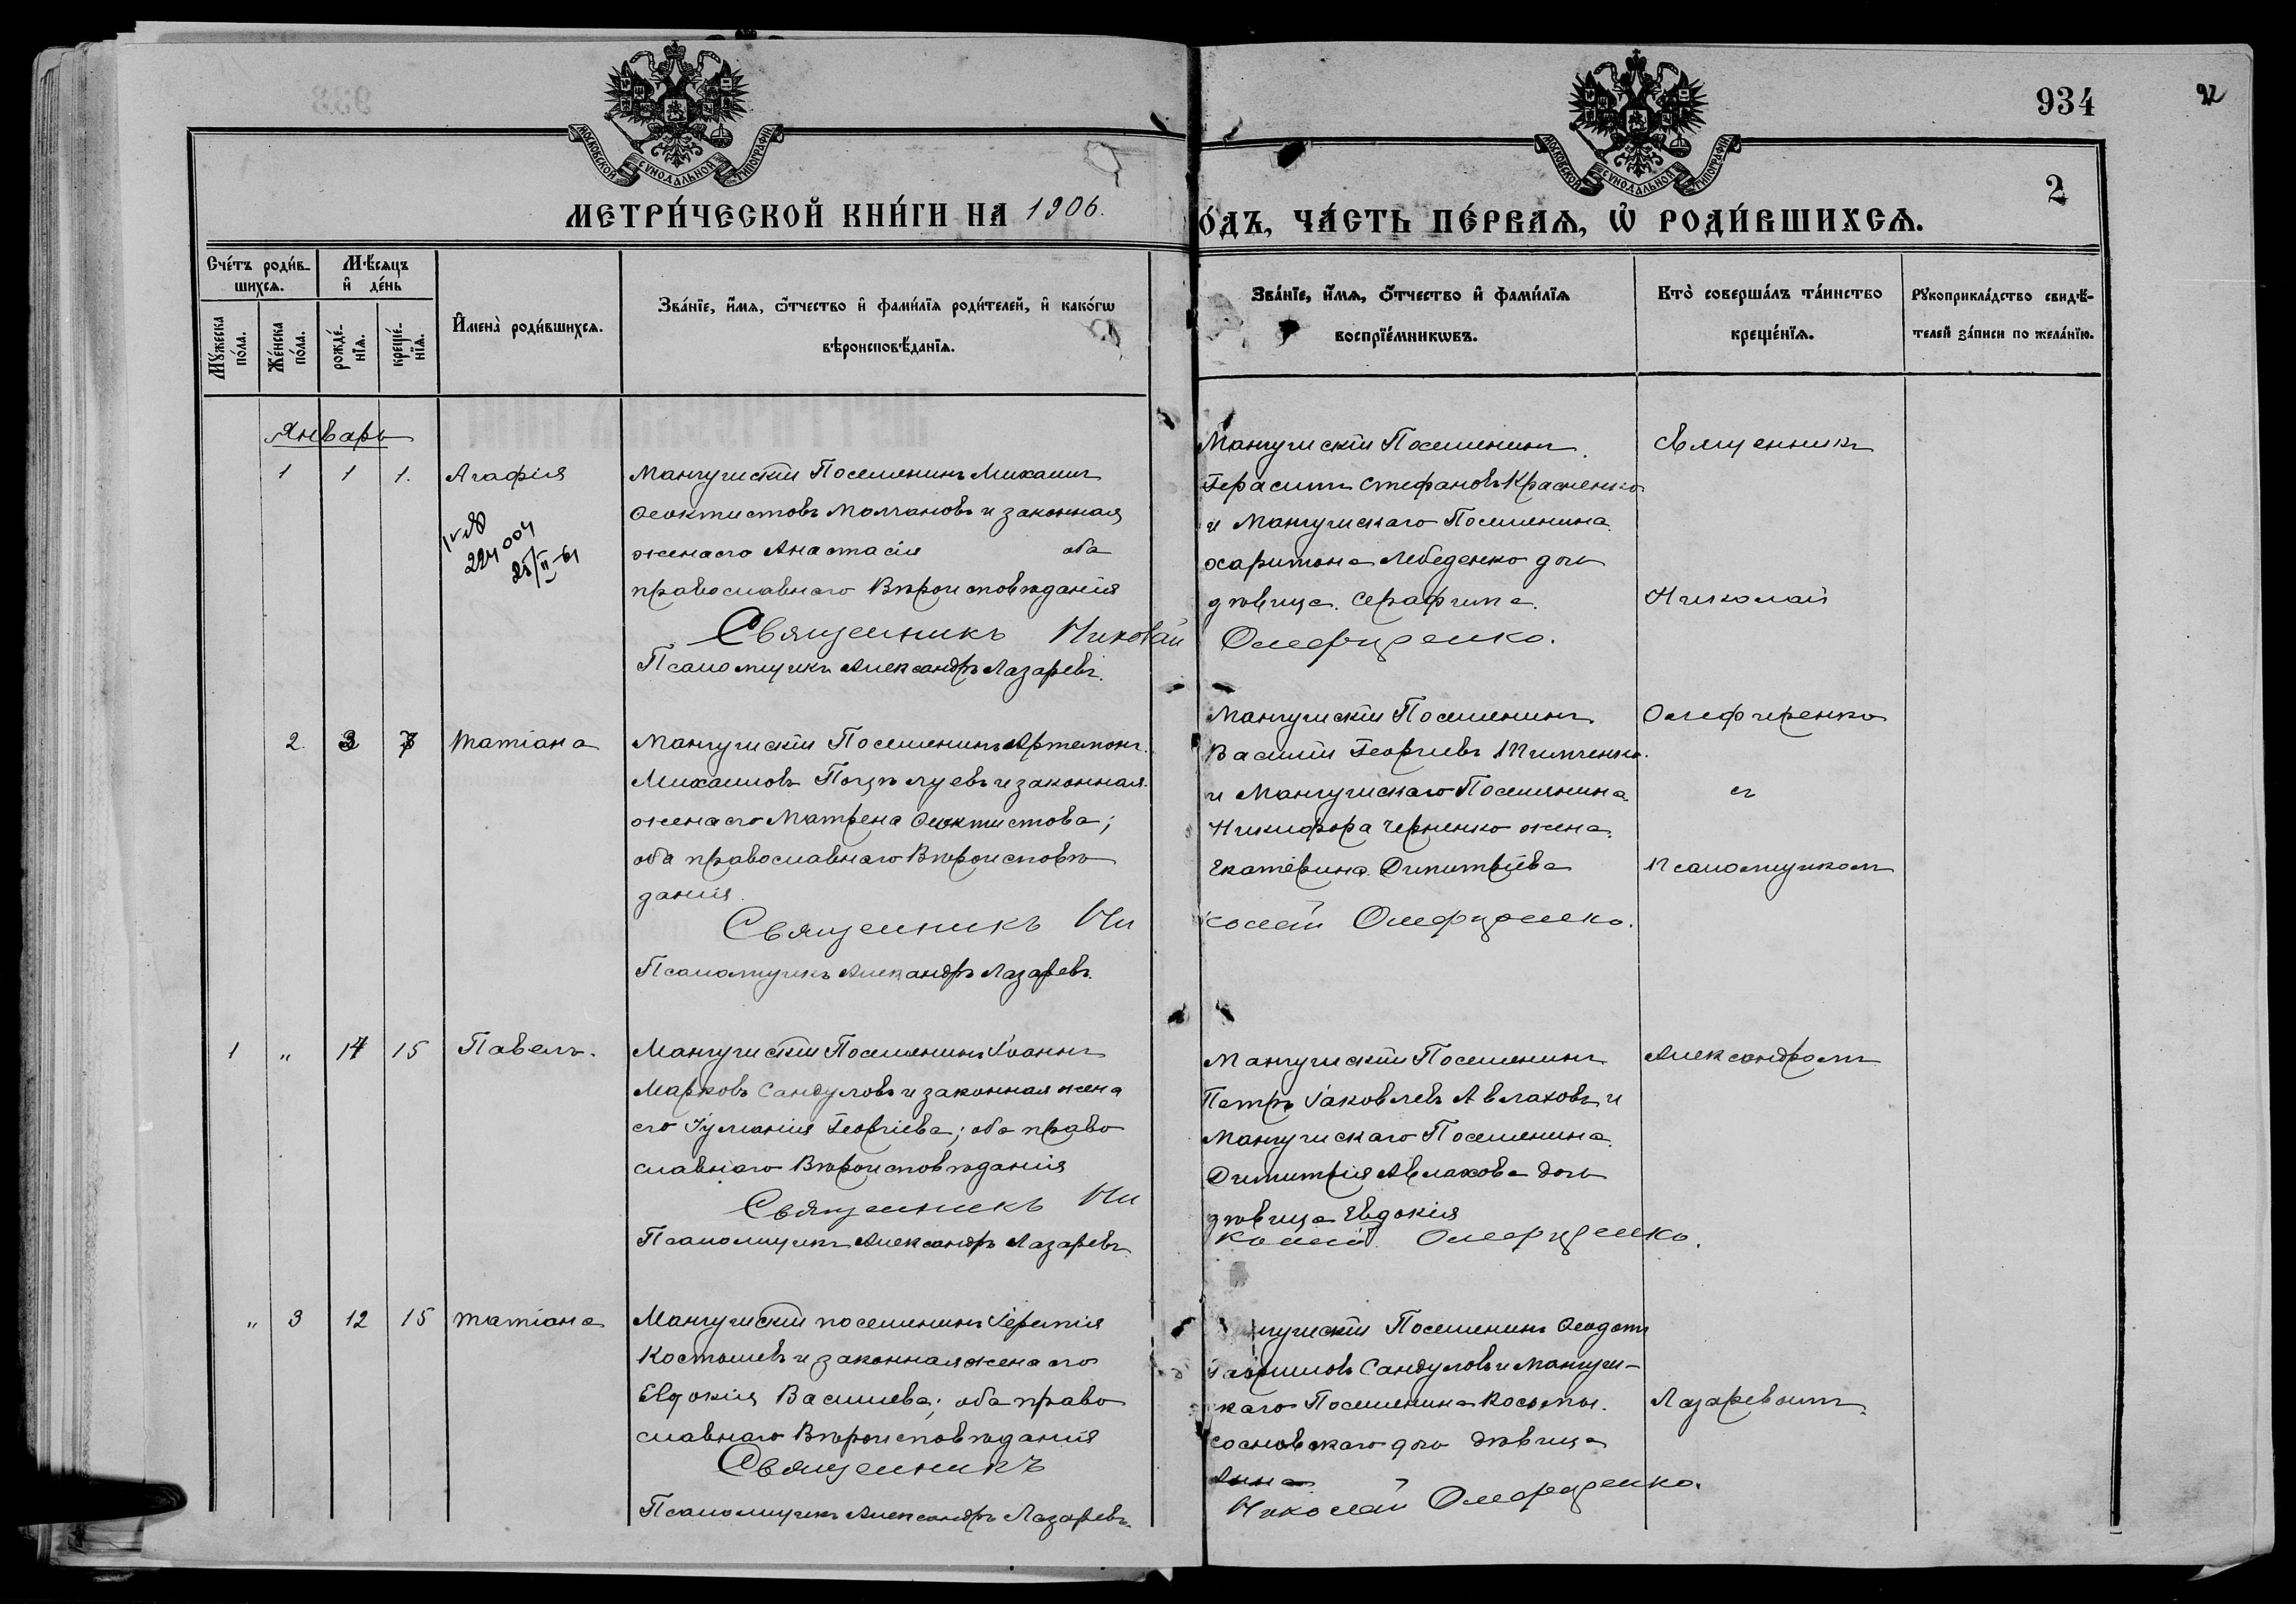 934
22
2
МОСКОВСКОЙ СУНОДАЛЬНОЙ ТИПОГРАФІИ
МОСКОВСКОЙ СУНОДАЛЬНОЙ ТИПОГРАФІИ
МЕТРИ́ЧЕСКОЙ КНИ́ГИ НА 1906.
О́ДЪ, ЧА́СТЬ ПЕ́РВАѦ, Ѡ҆ РОДИ́ВШИХСѦ.
Сче́тъ роди́в-
шихсѧ.
Мꙋ́жеска по́ла.
Же́нска по́ла.
Мѣ́сѧцъ
и҆ де́нь
рожде́-
нїѧ.
креще́-
нїѧ.
И҆мена̀ роди́вшихсѧ.
Зва́нїе, и҆́мѧ, ѻ҆́тчество и҆ фами́лїѧ роди́телей, и҆ како́гѡ
вѣроисповѣ́данїѧ.
Зва́нїе, и҆́мѧ, ѻ҆́тчество и҆ фами́лїѧ
воспрїе́мникѡвъ.
Кто̀ соверша́лъ та́инство
креще́нїѧ.
Рꙋкоприкла́дство свидѣ́-
телей за́писи по жела́нїю.
Январь
1 1 1. Агафія
224004
25/II-61
Мангушскій Поселянинъ Михаилъ
Ѳеоктистовъ Молчановъ и законная
жена его Анастасія оба
православнаго Вѣроисповѣданія
Священникъ Николай Олефиренко.
Псаломщикъ Александръ Лазаревъ.
Мангушскій Поселянинъ
Герасимъ Стефановъ Красненко
и Мангушскаго Поселянина
Харитона Лебеденко дочь
дѣвица Серафима.
Священникъ
Николай
2. 3 7 Татіана
Мангушскій Поселянинъ Артемонъ
Михаиловъ Поцѣлуевъ и законная
жена его Матрена Ѳеоктистова;
оба православнаго Вѣроисповѣ
данія
Священникъ Ни колай Олефиренко.
Псаломщикъ Александръ Лазаревъ.
Мангушскій Поселянинъ
Василій Георгіевъ Тимченко.
и Мангушскаго Поселянина
Никифора Черненко жена
Екатерина Димитріева
Олефиренко
съ
Псаломщикомъ
1 " 14 15 Павелъ.
Мангушскій Поселянинъ Іоаннъ
Марковъ Сандуловъ и законная жена
его Іуліанія Георгіева; оба право
славнаго Вѣроисповѣданія
Священникъ Ни колай Олефиренко.
Псаломщикъ Александръ Лазаревъ.
Мангушскій Поселянинъ
Петръ Іаковлевъ Авлаховъ и
Мангушскаго Поселянина
Димитрія Авлахова дочь
дѣвица Евдокія
Александромъ
" 3 12 15 Татіана
Мангушскій поселянинъ Іеремія
Костышевъ и законная жена его
Евдокія Васильева; оба право
славнаго Вѣроисповѣданія
Священникъ
Псаломщикъ Александръ Лазаревъ.
нгушскій Поселянинъ Ѳеодотъ
Гавриловъ Сандуловъ и Мангуш-
скаго Поселянина Космы
Сосновскаго дочь дѣвица
Анна
Николай Олефиренко.
Лазаревымъ.